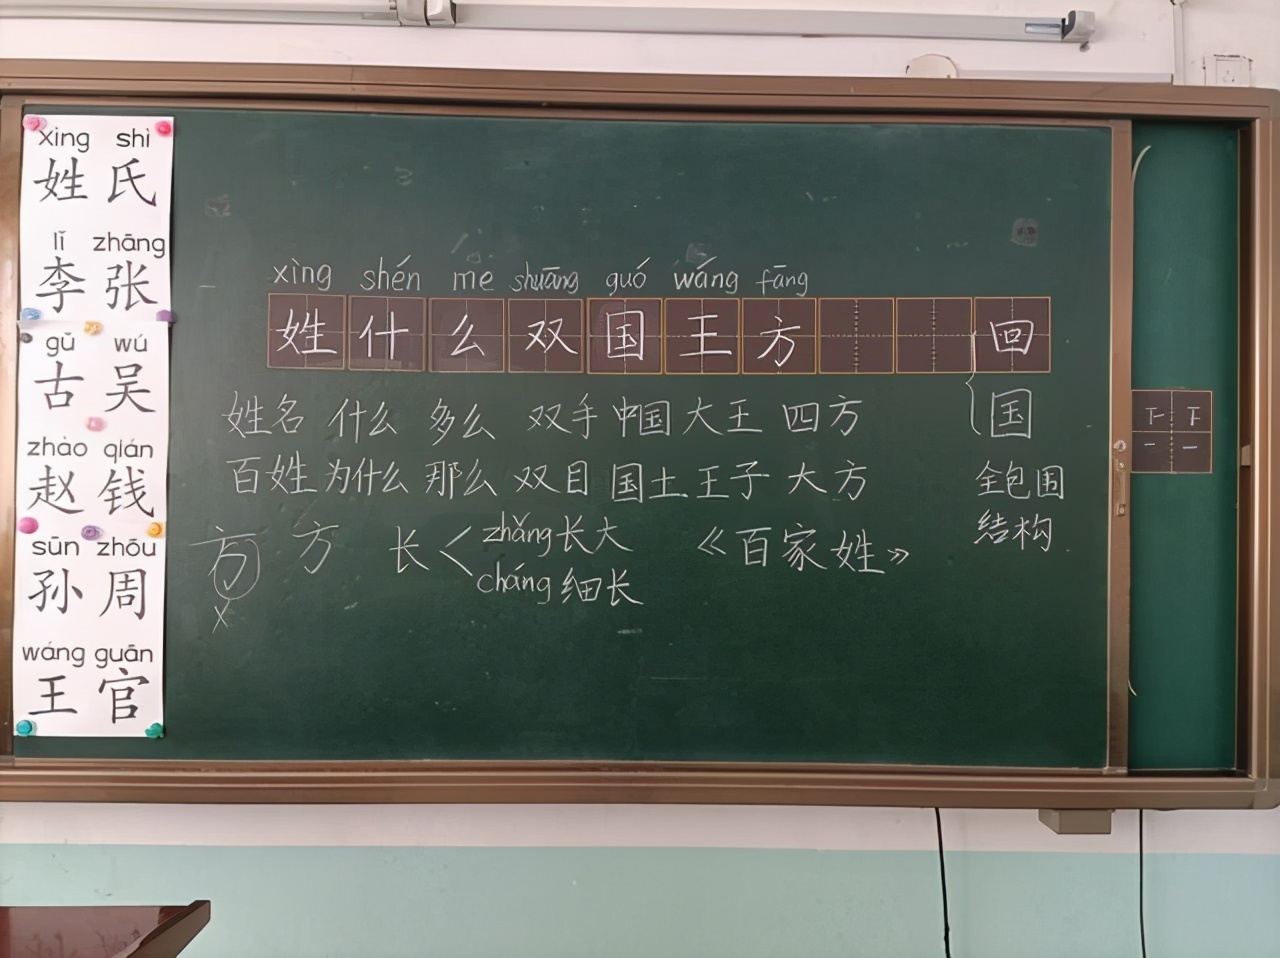 xìng shì
姓 氏
lǐ zhāng
李 张
gǔ wú
古 吴
zhào qián
赵 钱
sūn zhōu
孙 周
wáng guān
王 官
xìng shén me shuāng guó wáng fāng
姓 什 么 双 国 王 方 回
姓名 什么 多么 双手 中国 大王 四方 国
百姓 为什么 那么 双目 国土 王子 大方 全包围
结构
方 方 长 zhǎng 长大 《百家姓》
cháng 细长
x
下 下
一 一